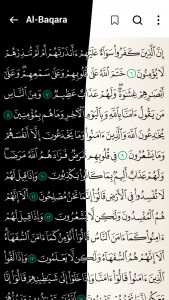 Al-Baqara
إِنَّ ٱلَّذِينَ كَفَرُوا۟ سَوَآءٌ عَلَيْهِمْ ءَأَنذَرْتَهُمْ أَمْ لَمْ تُنذِرْهُمْ
لَا يُؤْمِنُونَ ٦ خَتَمَ ٱللَّهُ عَلَىٰ قُلُوبِهِمْ وَعَلَىٰ سَمْعِهِمْ ۖ وَعَلَىٰٓ
أَبْصَـٰرِهِمْ غِشَـٰوَةٌ ۖ وَلَهُمْ عَذَابٌ عَظِيمٌ ٧ وَمِنَ ٱلنَّاسِ
مَن يَقُولُ ءَامَنَّا بِٱللَّهِ وَبِٱلْيَوْمِ ٱلْـَٔاخِرِ وَمَا هُم بِمُؤْمِنِينَ ٨
يُخَـٰدِعُونَ ٱللَّهَ وَٱلَّذِينَ ءَامَنُوا۟ وَمَا يَخْدَعُونَ إِلَّآ أَنفُسَهُمْ
وَمَا يَشْعُرُونَ ٩ فِى قُلُوبِهِم مَّرَضٌ فَزَادَهُمُ ٱللَّهُ مَرَضًا ۖ
وَلَهُمْ عَذَابٌ أَلِيمٌۢ بِمَا كَانُوا۟ يَكْذِبُونَ ١٠ وَإِذَا قِيلَ لَهُمْ
لَا تُفْسِدُوا۟ فِى ٱلْأَرْضِ قَالُوٓا۟ إِنَّمَا نَحْنُ مُصْلِحُونَ ١١ أَلَآ إِنَّهُمْ
هُمُ ٱلْمُفْسِدُونَ وَلَـٰكِن لَّا يَشْعُرُونَ ١٢ وَإِذَا قِيلَ لَهُمْ
ءَامِنُوا۟ كَمَآ ءَامَنَ ٱلنَّاسُ قَالُوٓا۟ أَنُؤْمِنُ كَمَآ ءَامَنَ ٱلسُّفَهَآءُ ۗ
أَلَآ إِنَّهُمْ هُمُ ٱلسُّفَهَآءُ وَلَـٰكِن لَّا يَعْلَمُونَ ١٣ وَإِذَا لَقُوا۟
ٱلَّذِينَ ءَامَنُوا۟ قَالُوٓا۟ ءَامَنَّا وَإِذَا خَلَوْا۟ إِلَىٰ شَيَـٰطِينِهِمْ قَالُوٓا۟ إِنَّا